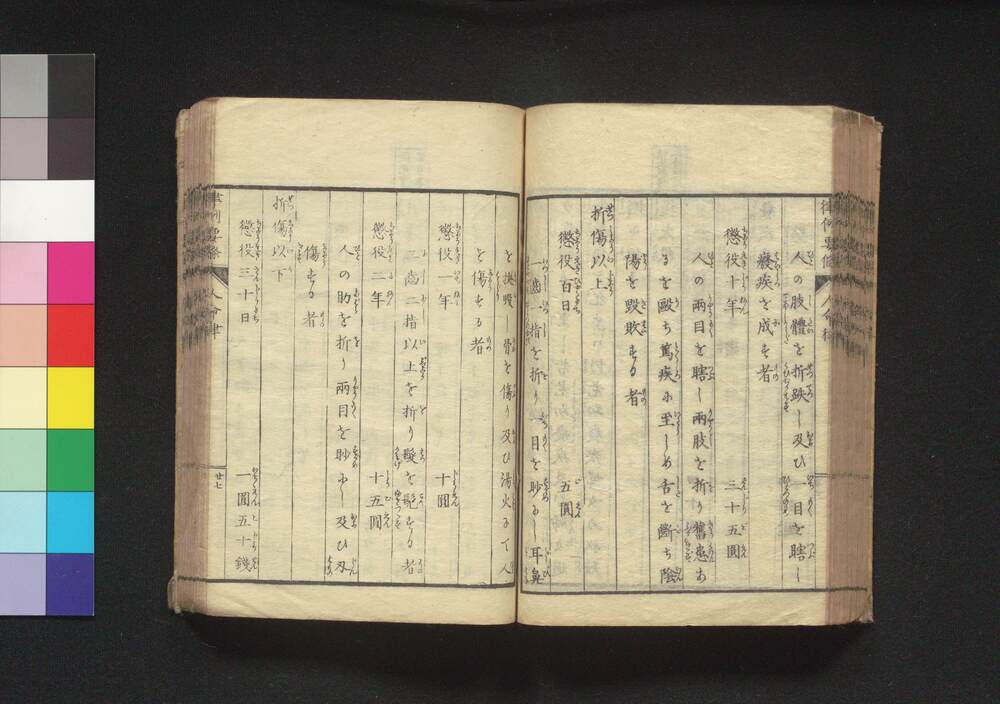 人の肢體を折跌し及ひ一目を瞎し
癈疾を成す者
懲役十年 三十五圓
人の兩目を瞎し兩肢を折り舊患あ
るを毆ち篤疾に至らしめ舌を斷ち陰
陽を毀敗する者
折傷以上
懲役百日 五圓
一齒一指を折り一目を眇にし耳鼻
を 毀し骨を傷り及ひ湯火にて人
を傷する者
懲役一年 十圓
二齒二指以上を折り髮を する者
懲役二年 十五圓
人の肋を折り兩目を眇にし及ひ刃
傷する者
折傷以下
懲役三十日 一圓五十錢
律例要條
人命律
廿七